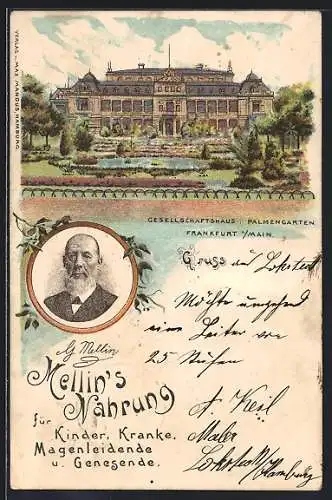 VERLAG v. MAX MARCUS, HAMBURG.
GESELLSCHAFTSHAUS i. PALMENGARTEN
FRANKFURT a/MAIN
Gruss aus Lokstedt
Möchte umgehend
eine Leiter von
25 Stufen
G Mellin
A Keil
Maler
Lokstedt/Hamburg
Mellin's
Nahrung
für
Kinder, Kranke,
Magenleidende
u. Genesende.